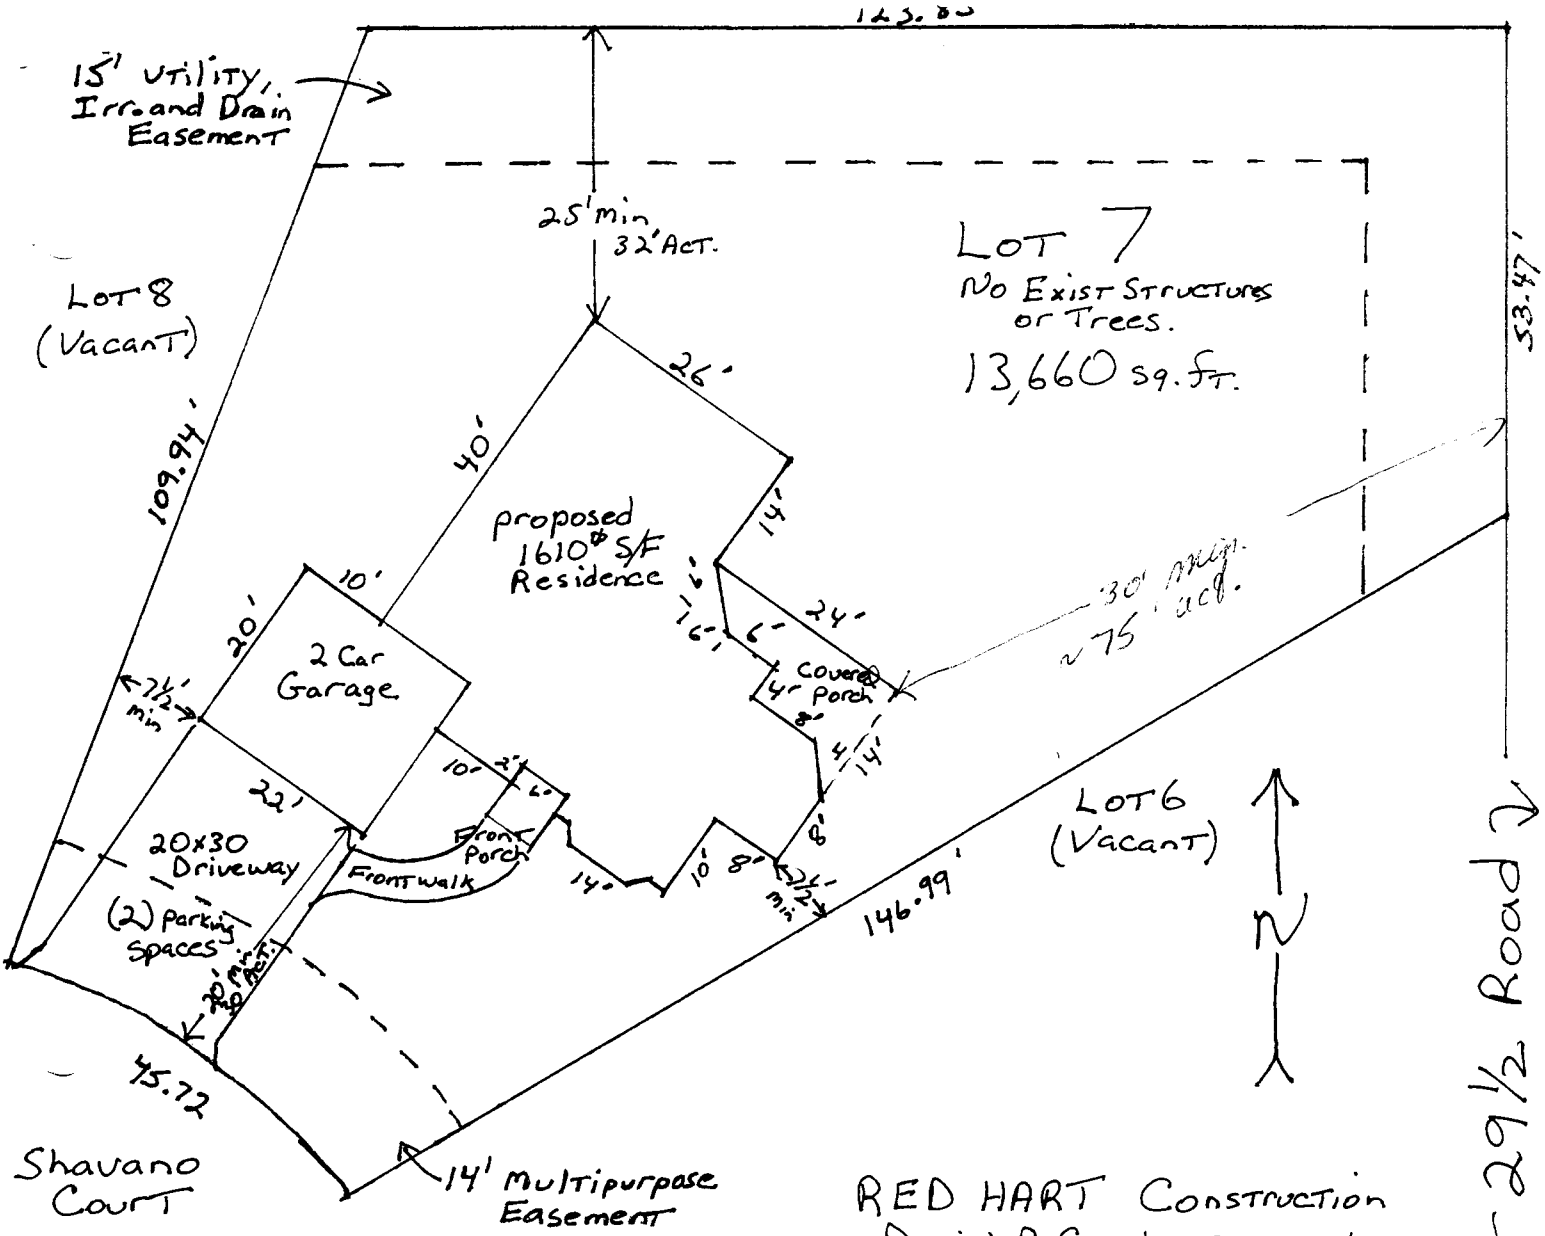 15' Utility,
Irr. and Drain
Easement
25' min
32' Act.
LOT 7
No Exist Structures
or Trees.
13,660 sq. ft.
53.47'
LOT 8
(Vacant)
109.94'
26'
40'
14'
proposed
1610 S/F
Residence
10'
20'
2 Car
Garage
7 1/2'
min
22'
24'
6'
6'
Covered
Porch
4'
8'
4
14'
8'
30' min.
~75' act.
10'
2'
6'
Front
Porch
Front walk
14'
10'
8'
7 1/2'
min
146.99'
LOT 6
(Vacant)
N
29 1/2 Road
20x30
Driveway
(2) Parking
Spaces
20' Min
Act.
45.72
Shavano
Court
14' Multipurpose
Easement
RED HART Construction